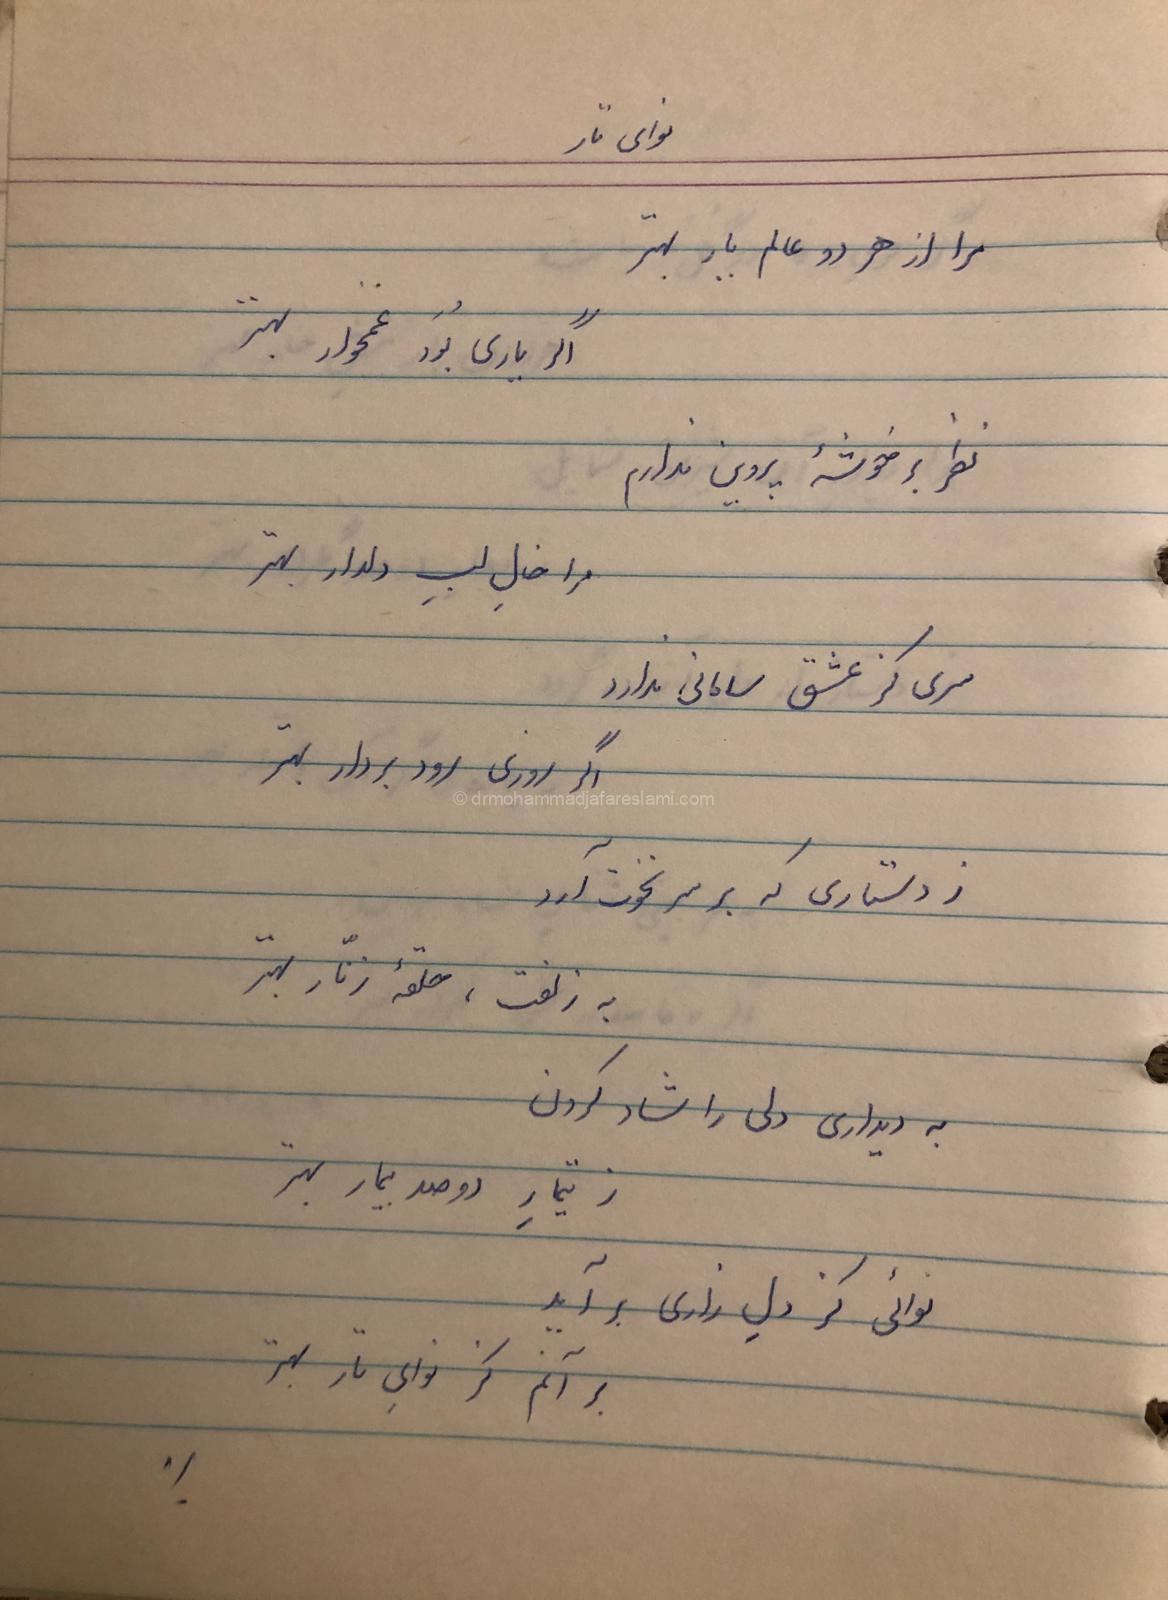 نوای تار
مرا از هر دو عالم یار بهتر
اگر یاری بُوَد غمخوار بهتر
نظر بر خوشهٔ پروین ندارم
مرا خالِ لبِ دلدار بهتر
سری کز عشق سامانی ندارد
اگر روزی رود بر دار بهتر
© drmohammadjafareslami.com
ز دستاری که بر سر نخوت آرد
به زلفت ، حلقهٔ زنّار بهتر
به دیداری دلی را شاد کردن
ز تیمارِ دو صد بیمار بهتر
نوائی کز دلِ زاری بر آید
بر آنم کز نوایِ تار بهتر